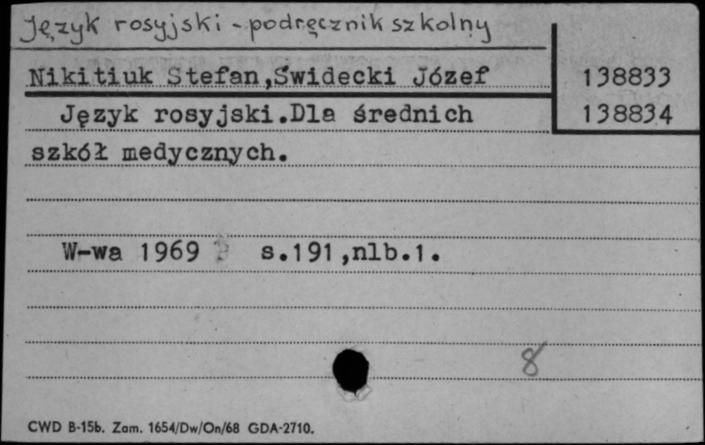 Język rosyjski - podręcznik szkolny
Nikitiuk Stefan,Świdecki Józef
138833
138834
Język rosyjski.Dla średnich
szkół medycznych.
W-wa 1969 s.191,nlb.1.
8
CWD B-15b. Zam. 1654/Dw/On/68 GDA-2710.